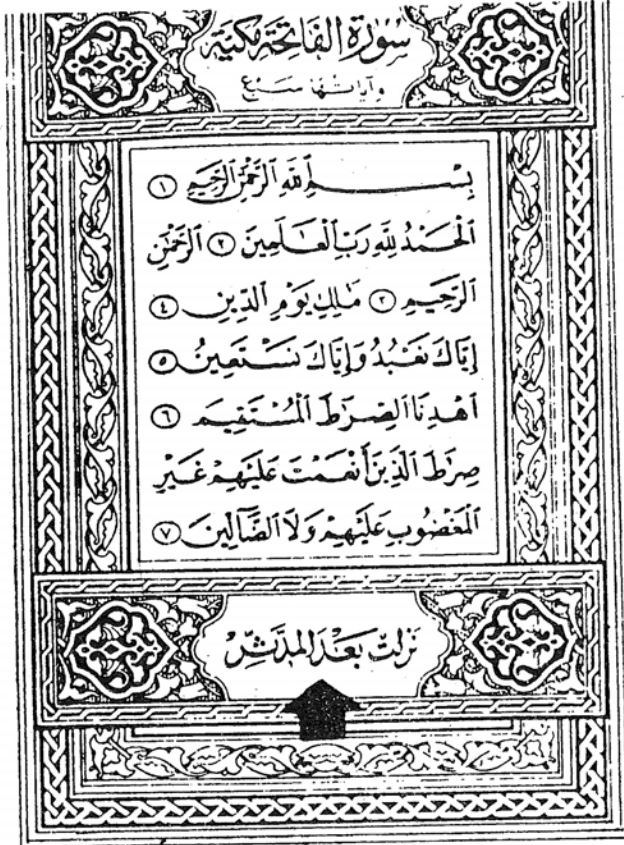 سُورَةُ الفَاتِحَةِ مَكِيَّة
وآياتها سَبْع
بِسْمِ اللَّهِ الرَّحْمَٰنِ الرَّحِيمِ ١
الْحَمْدُ لِلَّهِ رَبِّ الْعَالَمِينَ ٢ الرَّحْمَٰنِ
الرَّحِيمِ ٣ مَٰلِكِ يَوْمِ الدِّينِ ٤
إِيَّاكَ نَعْبُدُ وَإِيَّاكَ نَسْتَعِينُ ٥
اهْدِنَا الصِّرَٰطَ الْمُسْتَقِيمَ ٦
صِرَٰطَ الَّذِينَ أَنْعَمْتَ عَلَيْهِمْ غَيْرِ
الْمَغْضُوبِ عَلَيْهِمْ وَلَا الضَّآلِّينَ ٧
نَزَلتْ بَعْدَ المدَّثِّر